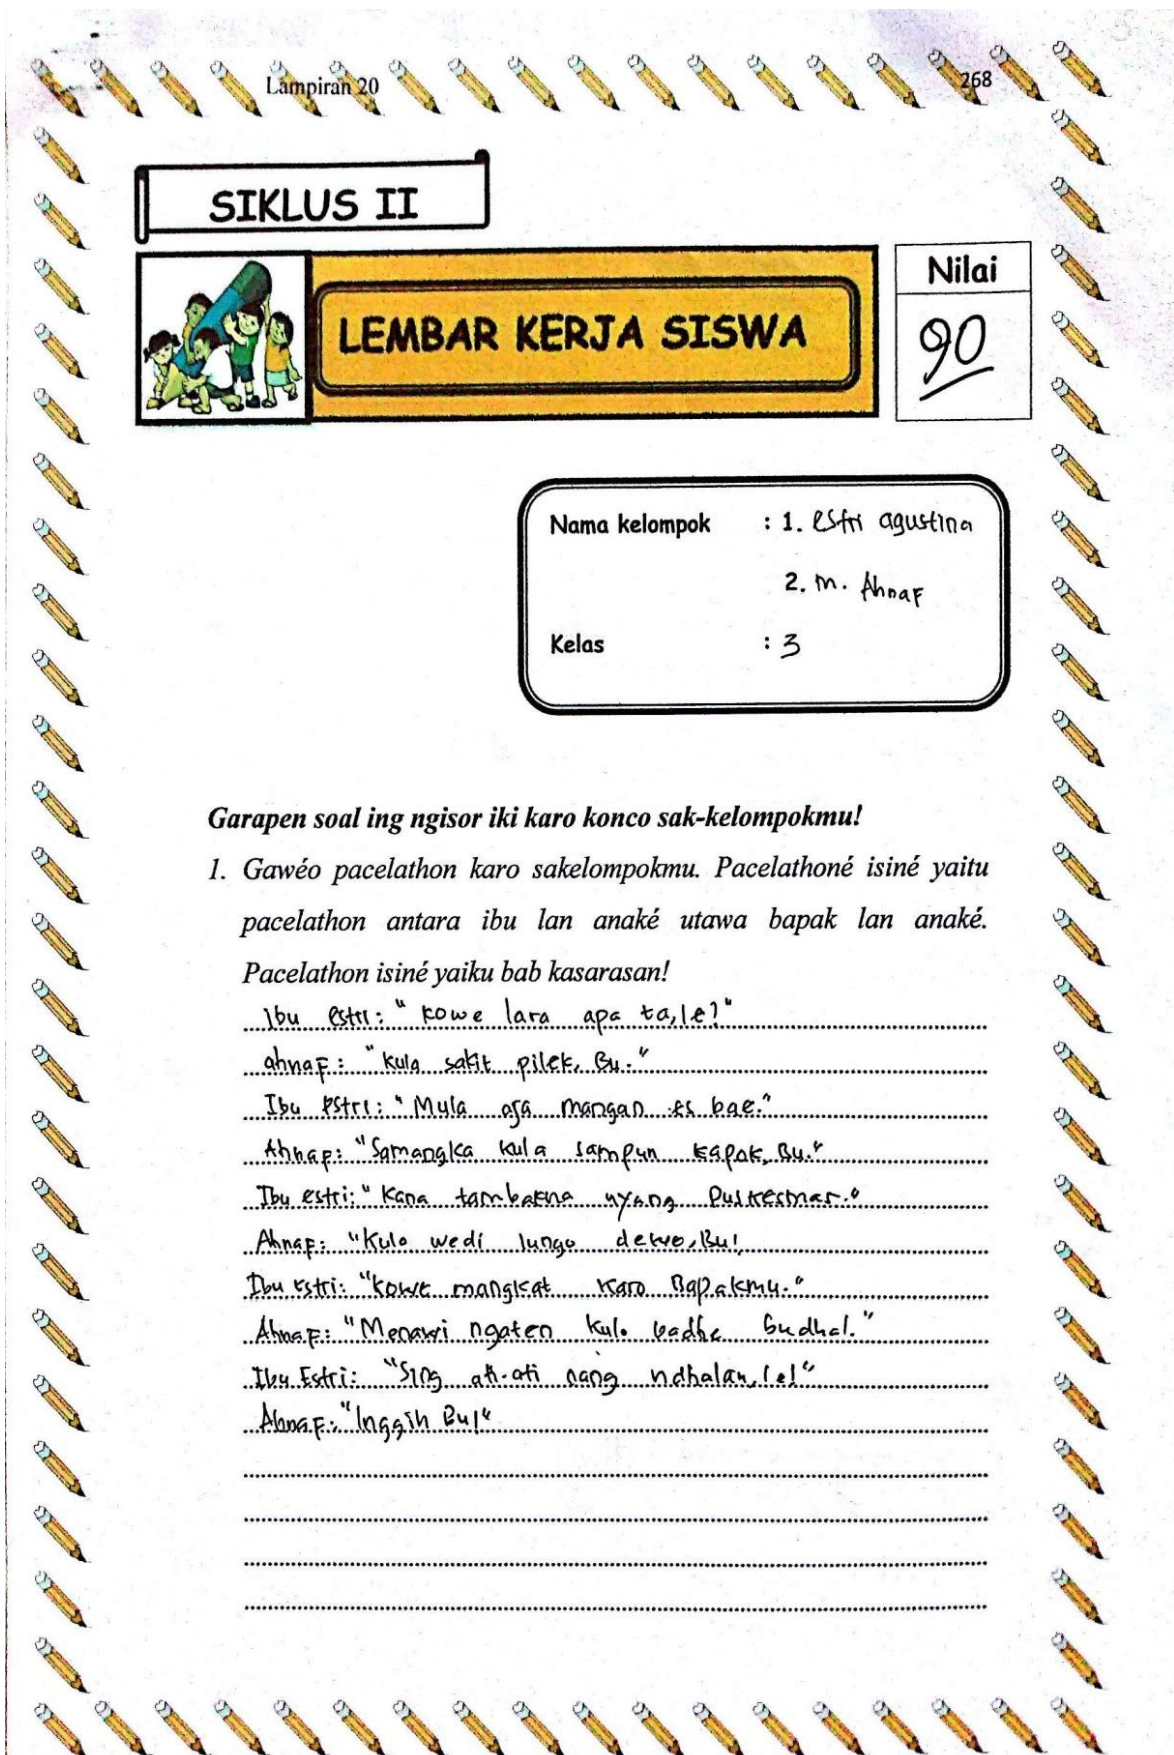 Lampiran 20
268
SIKLUS II
LEMBAR KERJA SISWA
Nilai
90
Nama kelompok : 1. estri agustina
2. m. Ahnaf
Kelas : 3
Garapen soal ing ngisor iki karo konco sak-kelompokmu!
1. Gawéo pacelathon karo sakelompokmu. Pacelathoné isiné yaitu
pacelathon antara ibu lan anaké utawa bapak lan anaké.
Pacelathon isiné yaiku bab kasarasan!
Ibu estri: "kowe lara apa ta, le?"
ahnaF: "kula sakit pilek, Bu."
Ibu estri: "Mula aja mangan es bae."
AhnaF: "Samangka kula sampun kapok, Bu."
Ibu estri: "Kana tambakna nyang Puskesmas."
AhnaF: "Kulo wedi lungo dewe, Bu!
Ibu estri: "kowe mangkat karo Bapakmu."
AhnaF: "Menawi ngaten kulo badhe budhal."
Ibu Estri: "Sing ati-ati nang ndhalan, le!"
AhnaF: "Inggih Bu!"